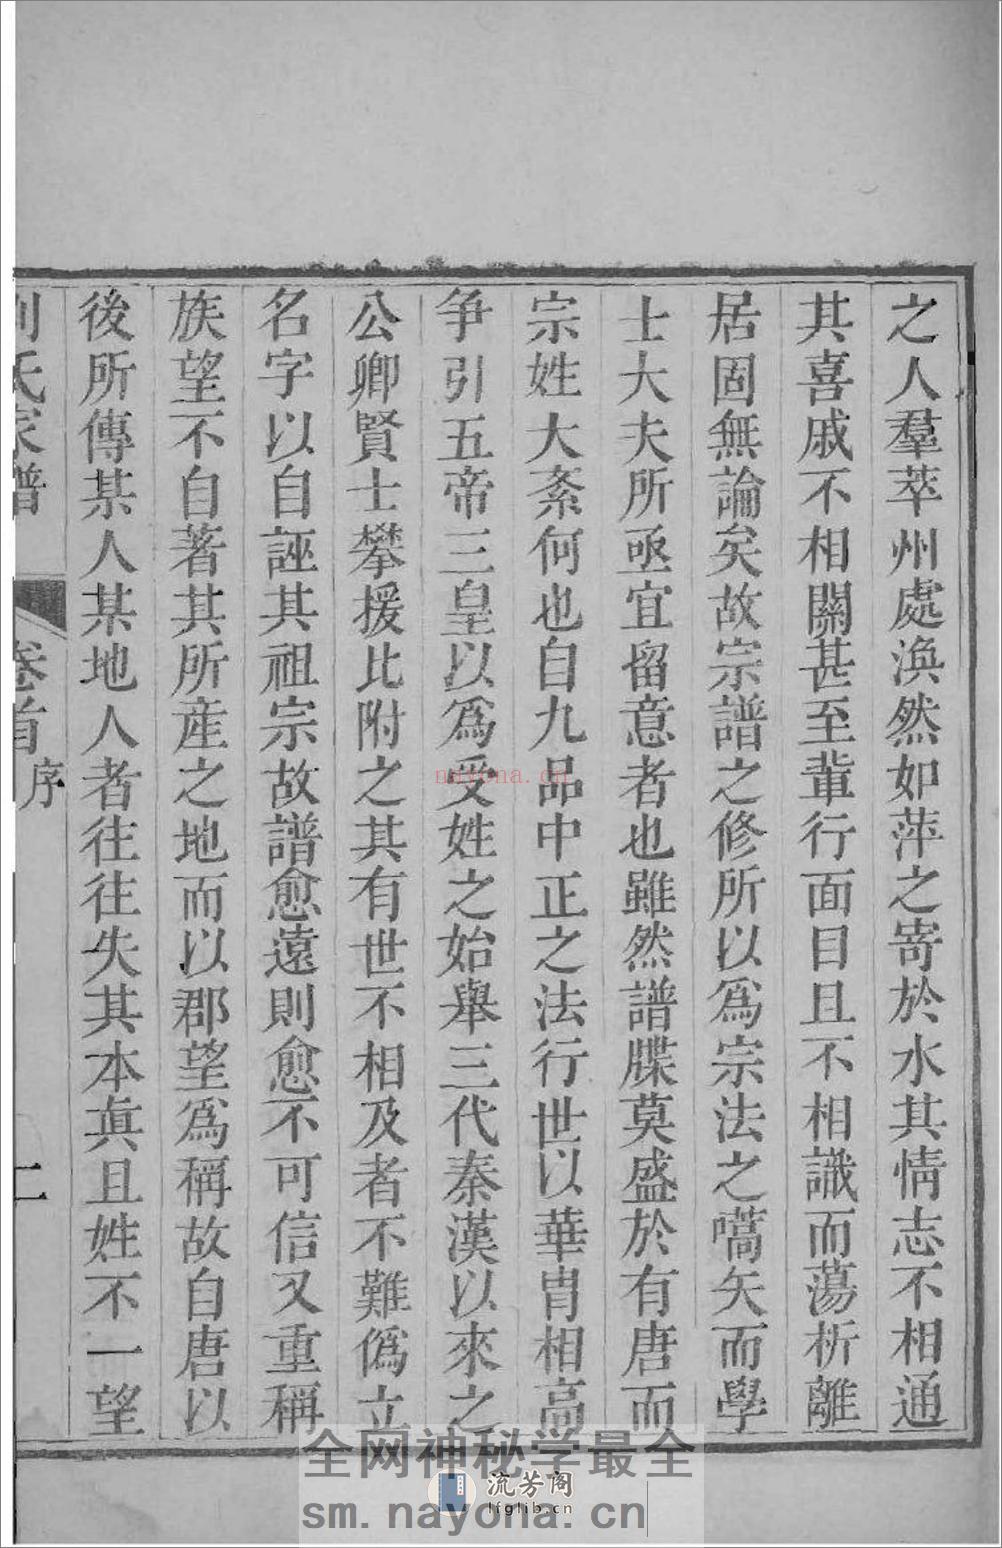 之人羣萃州處渙然如萍之寄於水其情志不相通
其喜戚不相關甚至軰行面目且不相識而蕩析離
居固無論矣故宗譜之修所以爲宗法之嚆矢而學
士大夫所亟宜留意者也雖然譜牒莫盛於有唐而
宗姓大紊何也自九品中正之法行世以華胄相高
爭引五帝三皇以爲受姓之始舉三代秦漢以來之
公卿賢士攀援比附之其有世不相及者不難僞立
名字以自誣其祖宗故譜愈遠則愈不可信又重稱
族望不自著其所產之地而以郡望爲稱故自唐以
後所傳某人某地人者往往失其本眞且姓不一望
氏家譜 卷首 序 二
nayona.cn
全网神秘学最全
流芳阁
lfglib.cn
sm.nayona.cn